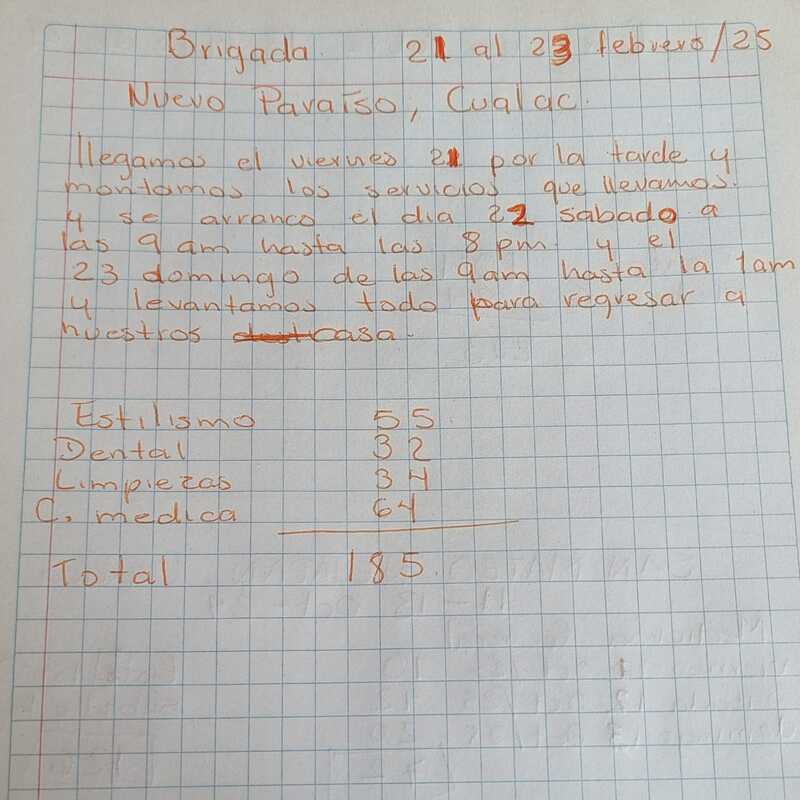 Brigada. 21 al 23 febrero/25
Nuevo Paraíso, Cualac.
llegamos el viernes 21 por la tarde y
montamos los servicios que llevamos.
y se arranco el dia 22 sabado a
las 9 am hasta las 8 pm y el
23 domingo de las 9am hasta la 1am
y levantamos todo para regresar a
nuestros casa.
Estilismo 55
Dental 32
Limpiezas 34
C. medica 64
Total 185.